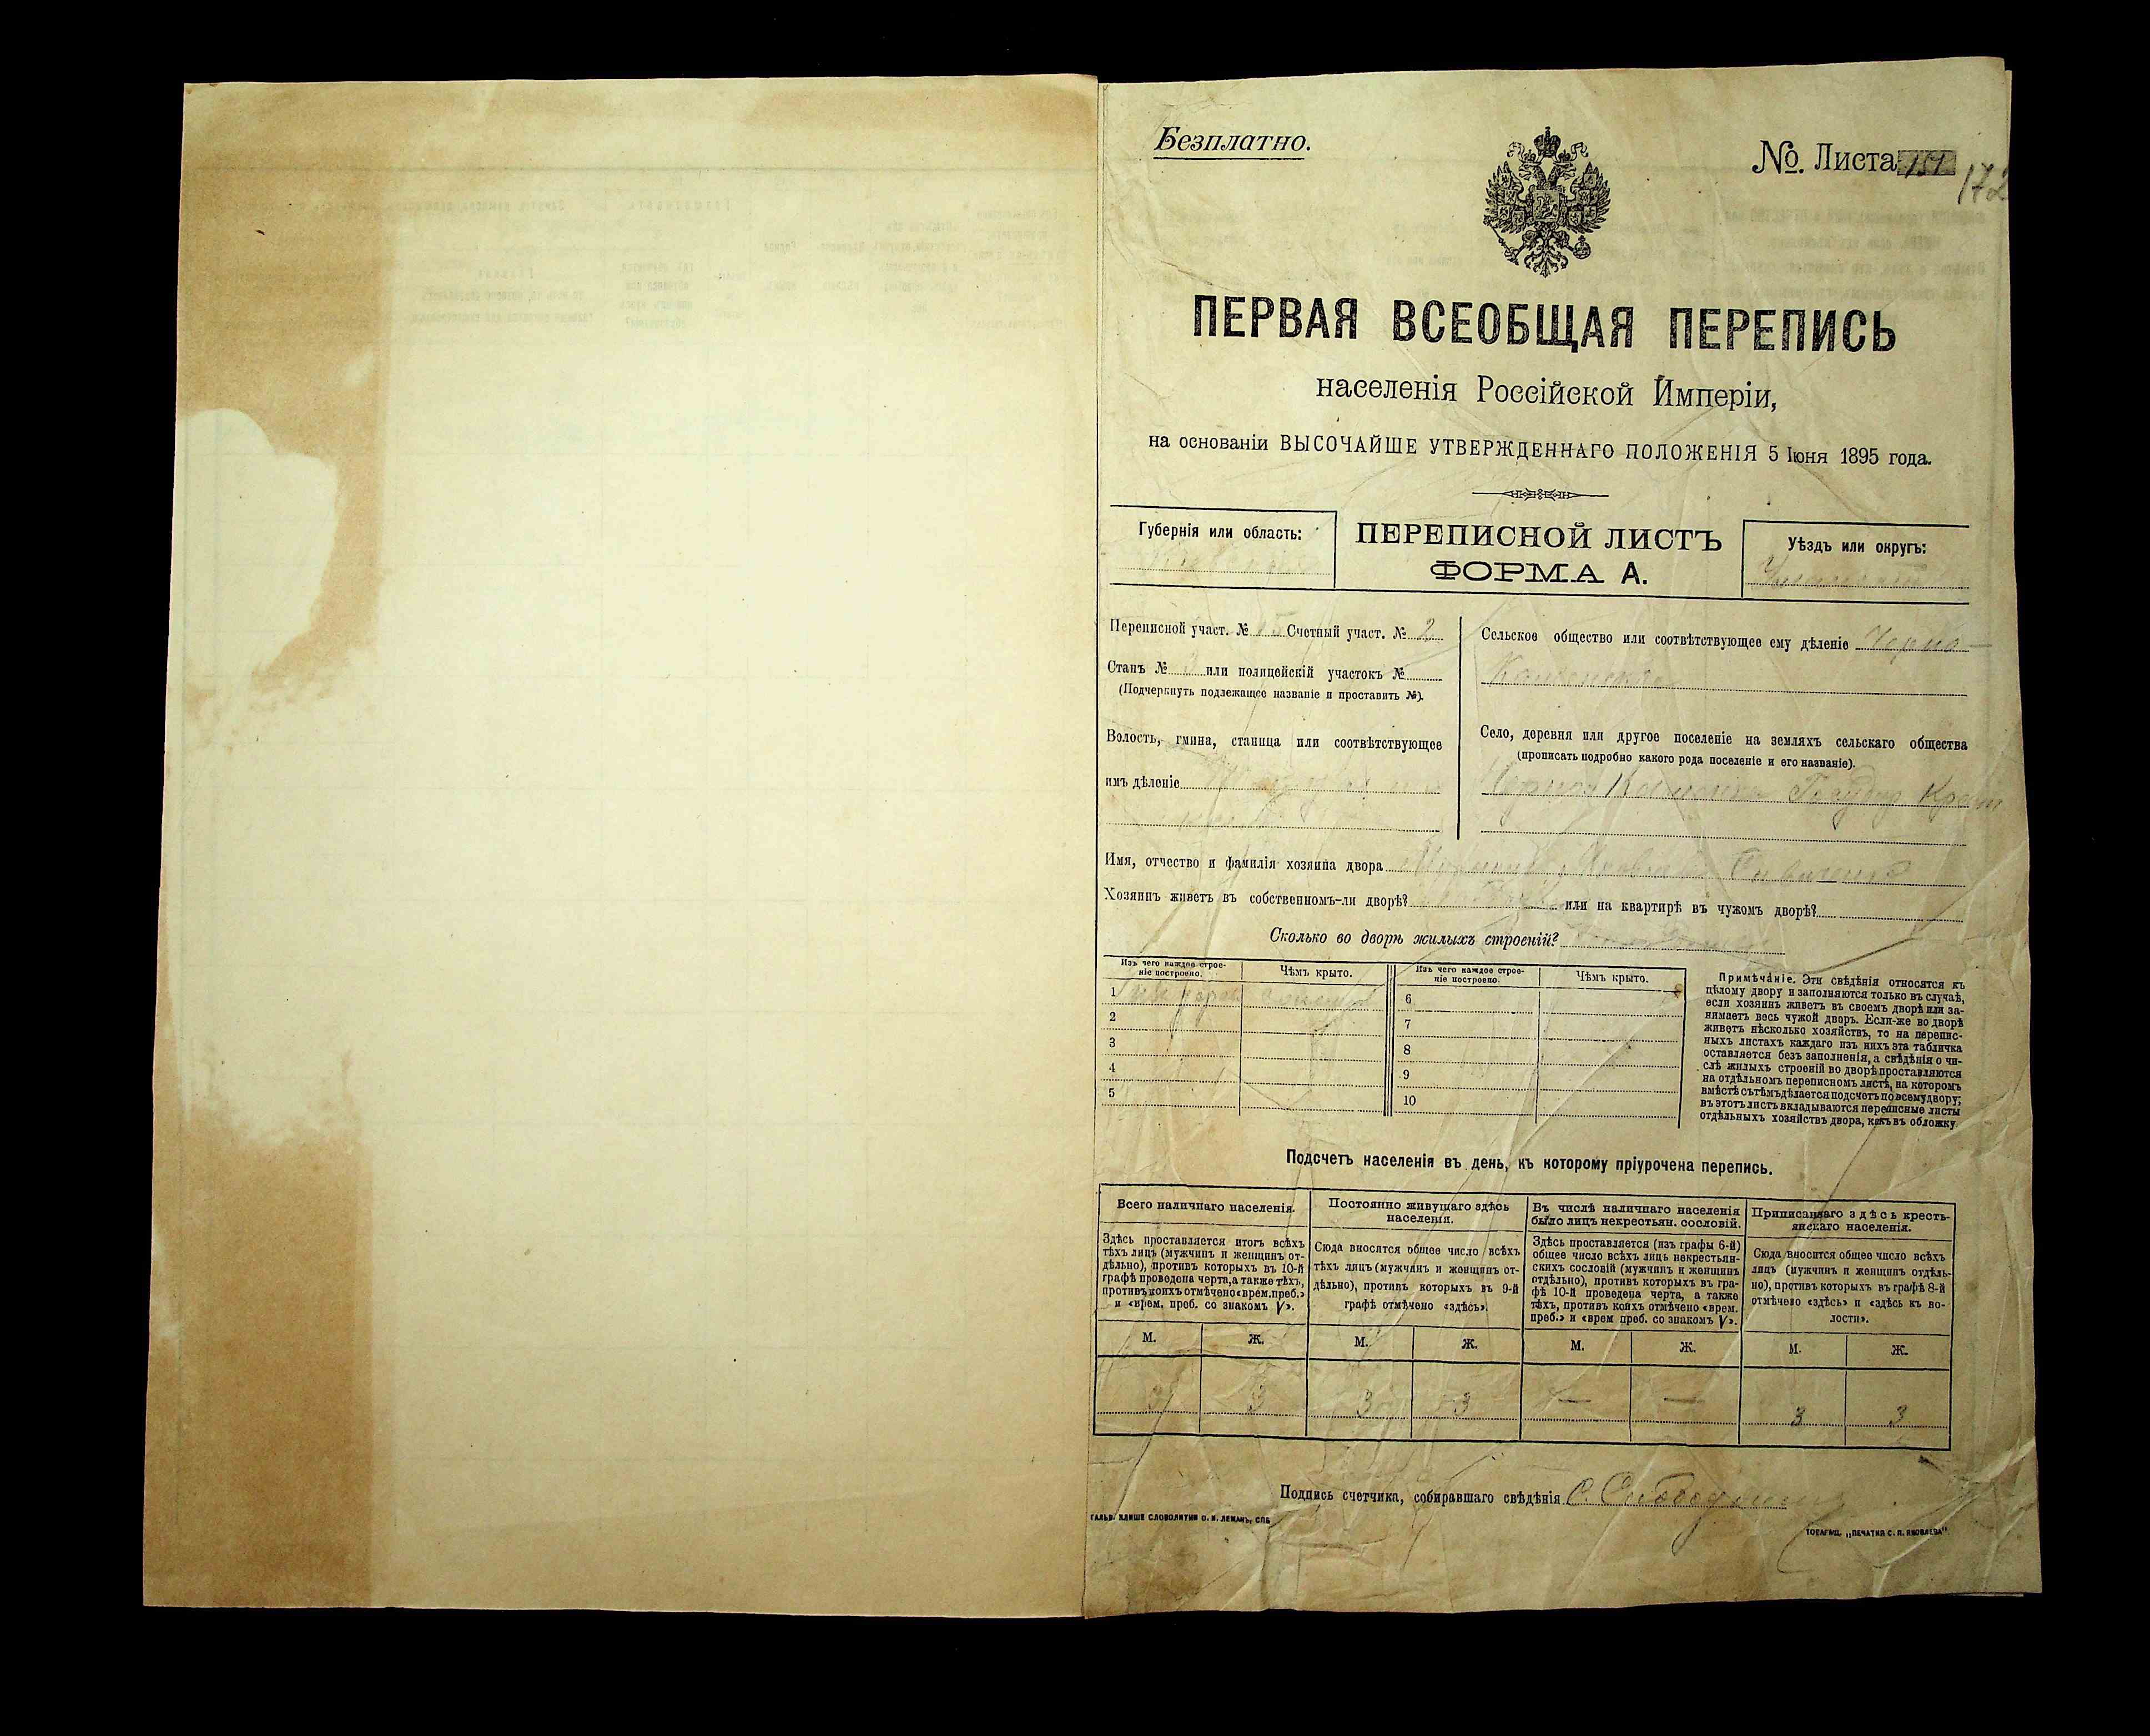 Безплатно.
№. Листа 151
172
ПЕРВАЯ ВСЕОБЩАЯ ПЕРЕПИСЬ
населенія Россійской Имперіи,
на основаніи ВЫСОЧАЙШЕ УТВЕРЖДЕННАГО ПОЛОЖЕНІЯ 5 Іюня 1895 года.
Губернія или область:
ПЕРЕПИСНОЙ ЛИСТЪ
ФОРМА А.
Уѣздъ или округъ:
Переписной участ. № 5 Счетный участ. № 2
Станъ № или полицейскій участокъ №
(Подчеркнуть подлежащее названіе и проставить №).
Волость, гмина, станица или соотвѣтствующее
имъ дѣленіе
Сельское общество или соотвѣтствующее ему дѣленіе Черно-
Каменское
Село, деревня или другое поселеніе на земляхъ сельскаго общества
(прописать подробно какого рода поселеніе и его названіе).
Черная Каменка
Имя, отчество и фамилія хозяина двора
Хозяинъ живетъ въ собственномъ-ли дворѣ? или на квартирѣ въ чужомъ дворѣ?
Сколько во дворѣ жилыхъ строеній?
Изъ чего каждое строе-
ніе построено.
Чѣмъ крыто.
1
2
3
4
5
Изъ чего каждое строе-
ніе построено.
Чѣмъ крыто.
6
7
8
9
10
Примѣчаніе. Эти свѣдѣнія относятся къ
цѣлому двору и заполняются только въ случаѣ,
если хозяинъ живетъ въ своемъ дворѣ или за-
нимаетъ весь чужой дворъ. Если-же во дворѣ
живетъ нѣсколько хозяйствъ, то на перепис-
ныхъ листахъ каждаго изъ нихъ эта табличка
оставляется безъ заполненія, а свѣдѣнія о чи-
слѣ жилыхъ строеній во дворѣ проставляются
на отдѣльномъ переписномъ листѣ, на которомъ
вмѣстѣ съ тѣмъ дѣлается подсчетъ по всему двору;
въ этотъ листъ вкладываются переписные листы
отдѣльныхъ хозяйствъ двора, какъ въ обложку.
Подсчетъ населенія въ день, къ которому пріурочена перепись.
Всего наличнаго населенія.
Здѣсь проставляется итогъ всѣхъ
тѣхъ лицъ (мужчинъ и женщинъ от-
дѣльно), противъ которыхъ въ 10-й
графѣ проведена черта, а также тѣхъ,
противъ коихъ отмѣчено «врем. преб.»
и «врем. преб. со знакомъ V».
М. Ж.
3 3
Постоянно живущаго здѣсь
населенія.
Сюда вносится общее число всѣхъ
тѣхъ лицъ (мужчинъ и женщинъ от-
дѣльно), противъ которыхъ въ 9-й
графѣ отмѣчено «здѣсь».
М. Ж.
3 3
Въ числѣ наличнаго населенія
было лицъ некрестьян. сословій.
Здѣсь проставляется (изъ графы 6-й)
общее число всѣхъ лицъ некрестьян-
скихъ сословій (мужчинъ и женщинъ
отдѣльно), противъ которыхъ въ гра-
фѣ 10-й проведена черта, а также
тѣхъ, противъ коихъ отмѣчено «врем.
преб.» и «врем преб. со знакомъ V».
М. Ж.
— —
Приписаннаго здѣсь кресть-
янскаго населенія.
Сюда вносится общее число всѣхъ
лицъ (мужчинъ и женщинъ отдѣль-
но), противъ которыхъ въ графѣ 8-й
отмѣчено «здѣсь» и «здѣсь къ во-
лости».
М. Ж.
3 3
Подпись счетчика, собиравшаго свѣдѣнія
ГАЛЬВ. КЛИШЕ СЛОВОЛИТНИ О. И. ЛЕМАНЪ, СПБ
ТОВАРИЩ. „ПЕЧАТНЯ С. П. ЯКОВЛЕВА"